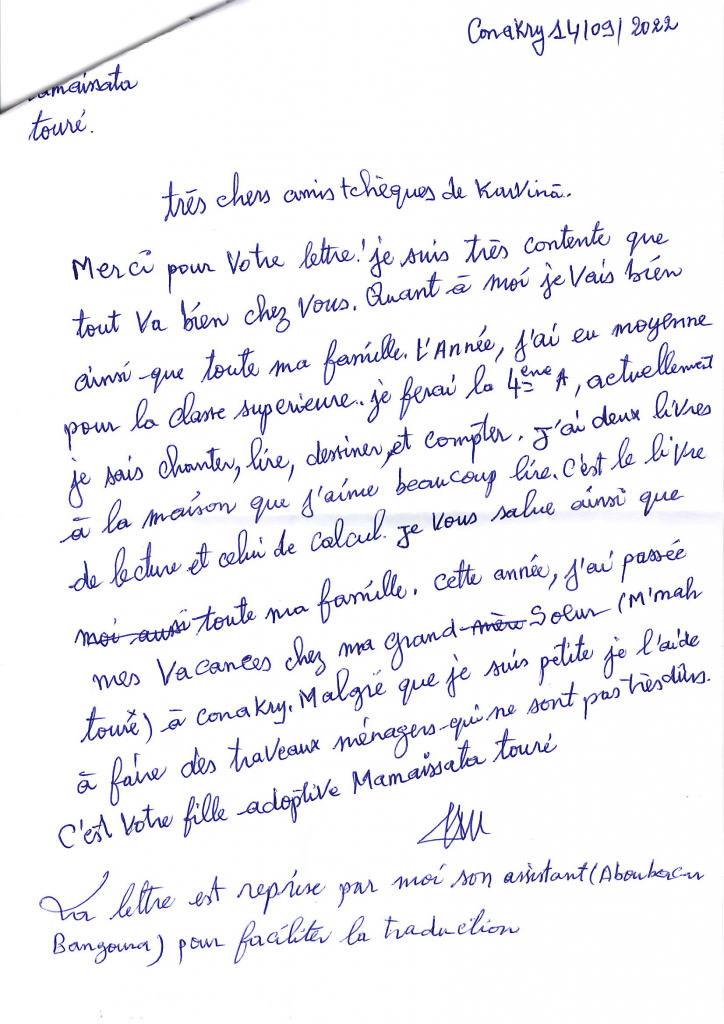 Conakry 14/09/2022
amaissata
touré.
très chers amis tchèques de Karvinà.
Merci pour Votre lettre! je suis très contente que
tout Va bien chez Vous. Quant à moi je Vais bien
ainsi que toute ma famille. L'Année, j'ai eu moyenne
pour la classe superieure. je ferai la 4ème A, actuellement
je sais chanter, lire, dessiner, et compter. J'ai deux livres
à la maison que j'aime beaucoup lire. C'est le livre
de lecture et celui de calcul. je Vous salue ainsi que
moi aussi toute ma famille. cette année, j'ai passée
mes Vacances chez ma grand-mère Soeur (M'mah
touré) à conakry. Malgré que je suis petite je l'aide
à faire des traveaux ménagers qui ne sont pas très durs.
C'est Votre fille adoptive Mamaissata touré
La lettre est reprise par moi son assistant (Aboubacar
Bangoura) pour faciliter la traduction